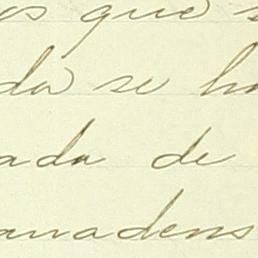 os que s
da se ha
ada de
anadens